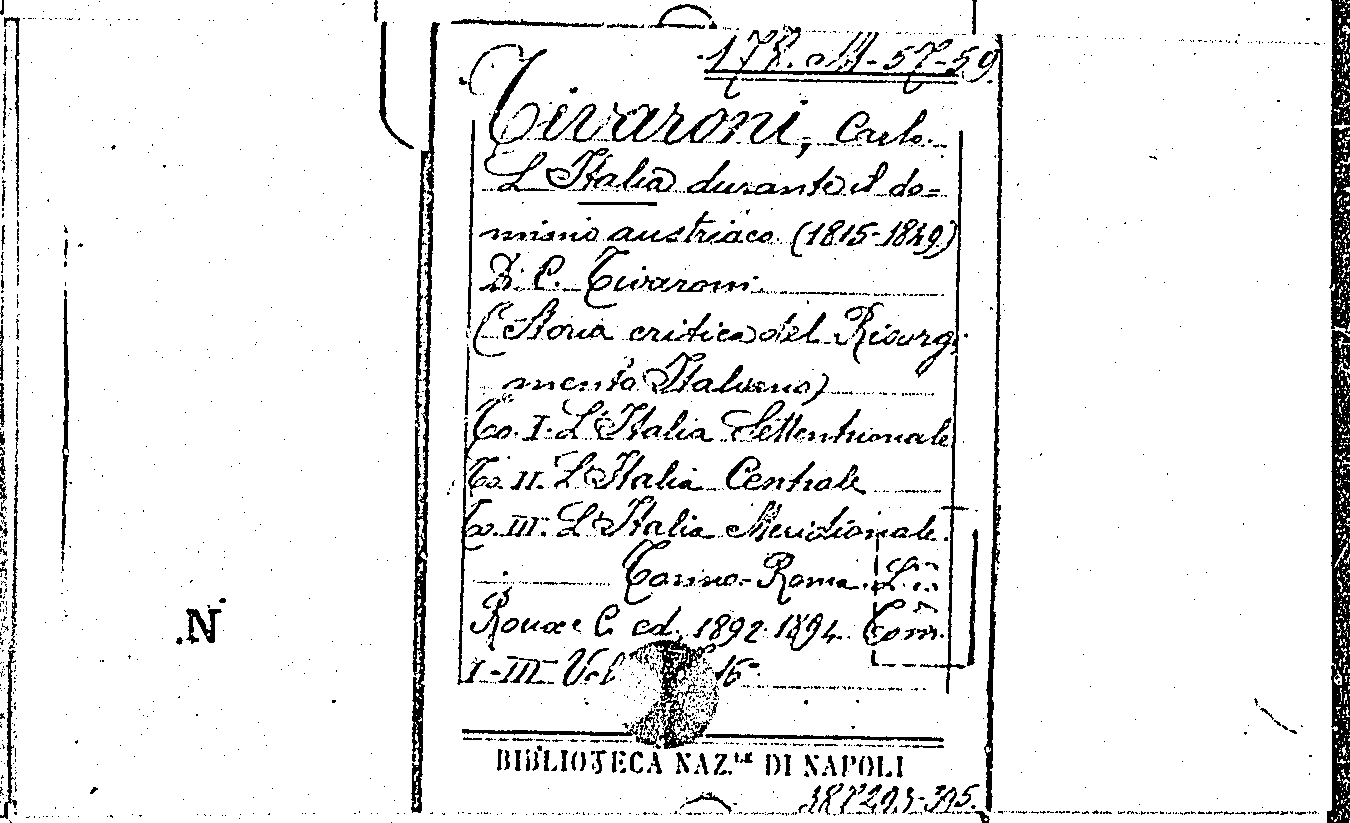 178. M-57-59.
Tivaroni, Carlo.
L'Italia durante il do=
minio austriaco. (1815-1849)
Di C. Tivaroni.
(Storia critica del Risorgi
mento Italiano)
To. I. L'Italia Settentrionale
To. II. L'Italia Centrale
To. III. L'Italia Meridionale.
Torino-Roma.
Roux e C. ed. 1892-1894.
I-III Vol 16°
BIBLIOTECA NAZ.LE DI NAPOLI
N